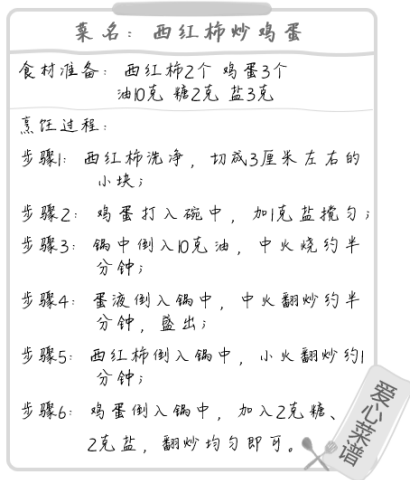 菜名：西红柿炒鸡蛋
食材准备：西红柿2个 鸡蛋3个
油10克 糖2克 盐3克
烹饪过程：
步骤1：西红柿洗净，切成3厘米左右的
小块；
步骤2：鸡蛋打入碗中，加1克盐搅匀；
步骤3：锅中倒入10克油，中火烧约半
分钟；
步骤4：蛋液倒入锅中，中火翻炒约半
分钟，盛出；
步骤5：西红柿倒入锅中，小火翻炒约1
分钟；
步骤6：鸡蛋倒入锅中，加入2克糖、
2克盐，翻炒均匀即可。
爱心菜谱